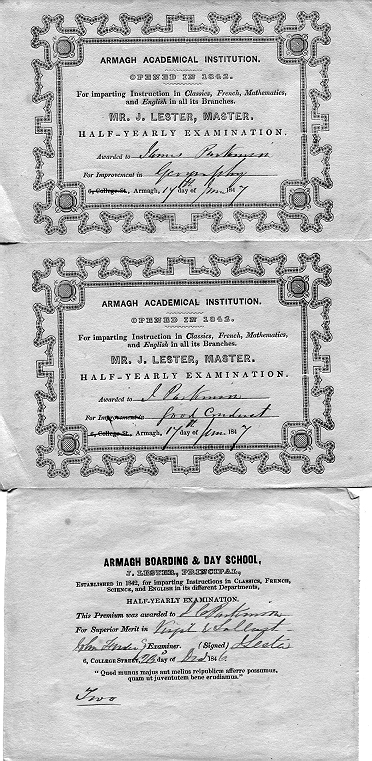 ARMAGH ACADEMICAL INSTITUTION.
OPENED IN 1842.
For imparting Instruction in Classics, French, Mathematics,
and English in all its Branches.
MR. J. LESTER, MASTER.
HALF-YEARLY EXAMINATION.
Awarded to James Parkinson
For Improvement in Geography
6, College St., Armagh, 17th day of June 1847
ARMAGH ACADEMICAL INSTITUTION.
OPENED IN 1842.
For imparting Instruction in Classics, French, Mathematics,
and English in all its Branches.
MR. J. LESTER, MASTER.
HALF-YEARLY EXAMINATION.
Awarded to J Parkinson
For Improvement in Good Conduct
6, College St., Armagh, 17th day of June 1847
ARMAGH BOARDING & DAY SCHOOL,
J. LESTER, PRINCIPAL,
ESTABLISHED IN 1842, for imparting Instructions in CLASSICS, FRENCH,
SCIENCE, and ENGLISH in its different Departments,
HALF-YEARLY EXAMINATION.
This Premium was awarded to Parkinson
For Superior Merit in Virgil & Sallust
John Examiner. (Signed) J Lester
6, COLLEGE STREET, day of 1846
"Quod munus majus aut melius reipublicæ afferre possumus,
quam ut juventutem bene erudiamus."
Two